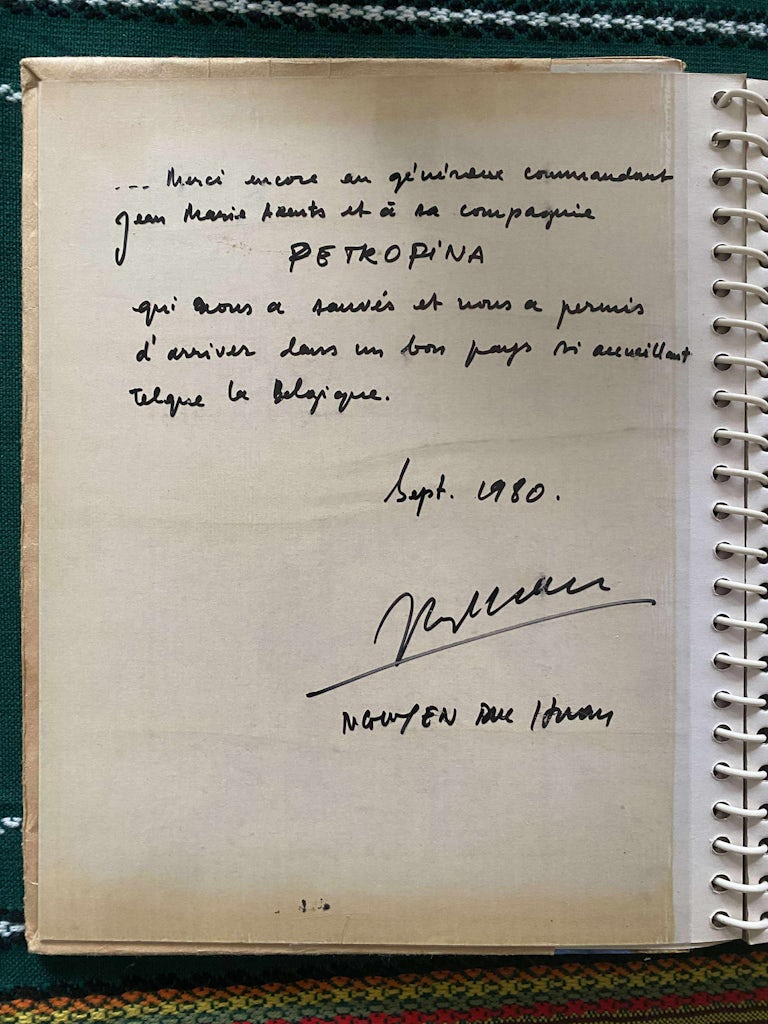 ... Merci encore au généreux commandant
Jean Marie Arents et à sa compagnie
PETROFINA
qui nous a sauvés et nous a permis
d'arriver dans un bon pays si accueillant
telque la Belgique.
Sept. 1980.
NGUYEN Duc